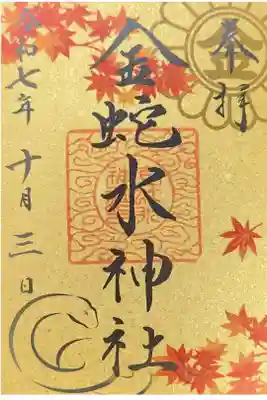 奉拝
金
金蛇水神社
令和七年
十月三日